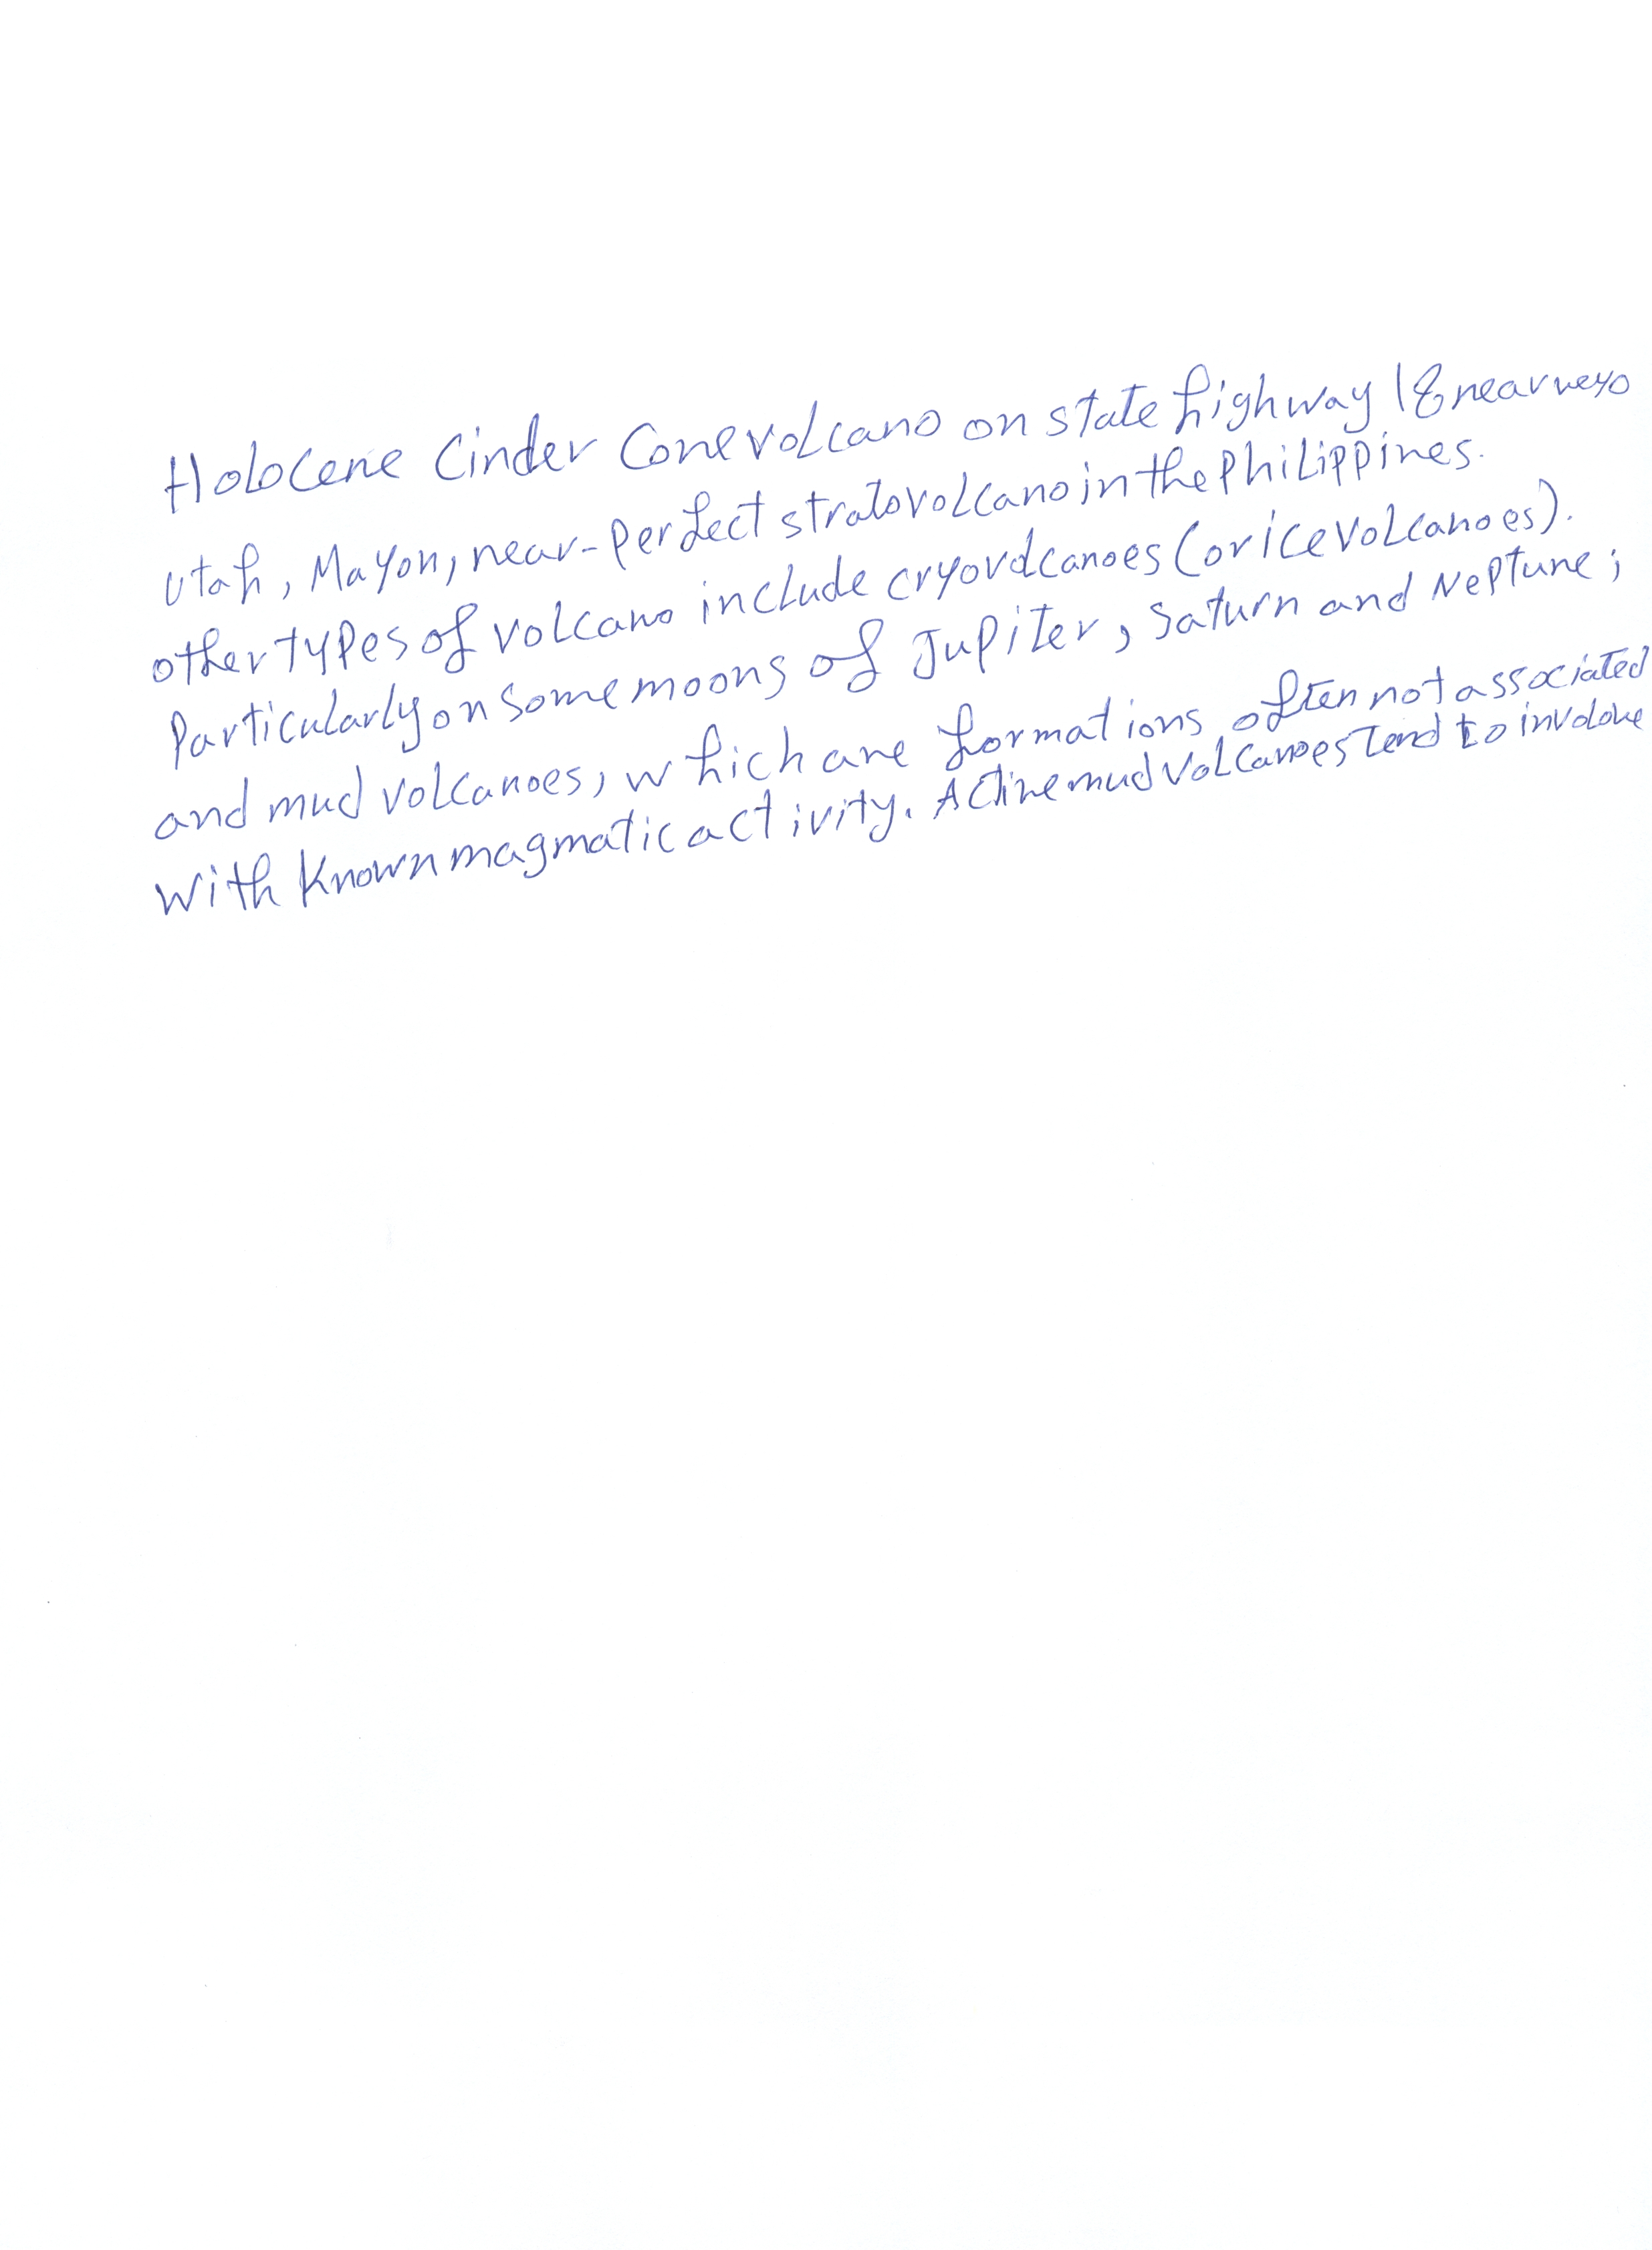 Holocene Cinder Cone volcano on state highway 18 near veyo
Utah, Mayon, near-perfect stratovolcano in the Philippines.
other types of volcano include cryovolcanoes (or ice volcanoes).
Particularly on some moons of Jupiter, Saturn and Neptune;
and mud volcanoes, which are formations often not associated
with known magmatic activity. Active mud volcanoes tend to involve